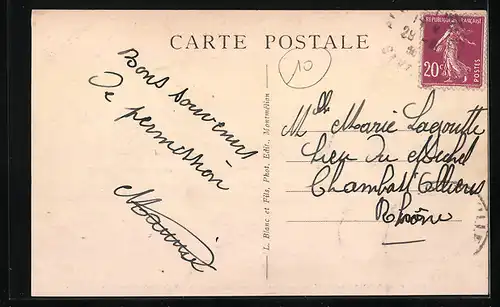 CARTE POSTALE
REPUBLIQUE FRANÇAISE
20c
POSTES
10
Bons souvenirs
De permission
L. Blanc et Fils, Phot. Edit., Montmélian
Mlle Marie Lagoutte
Lieu du Michel
Rhône